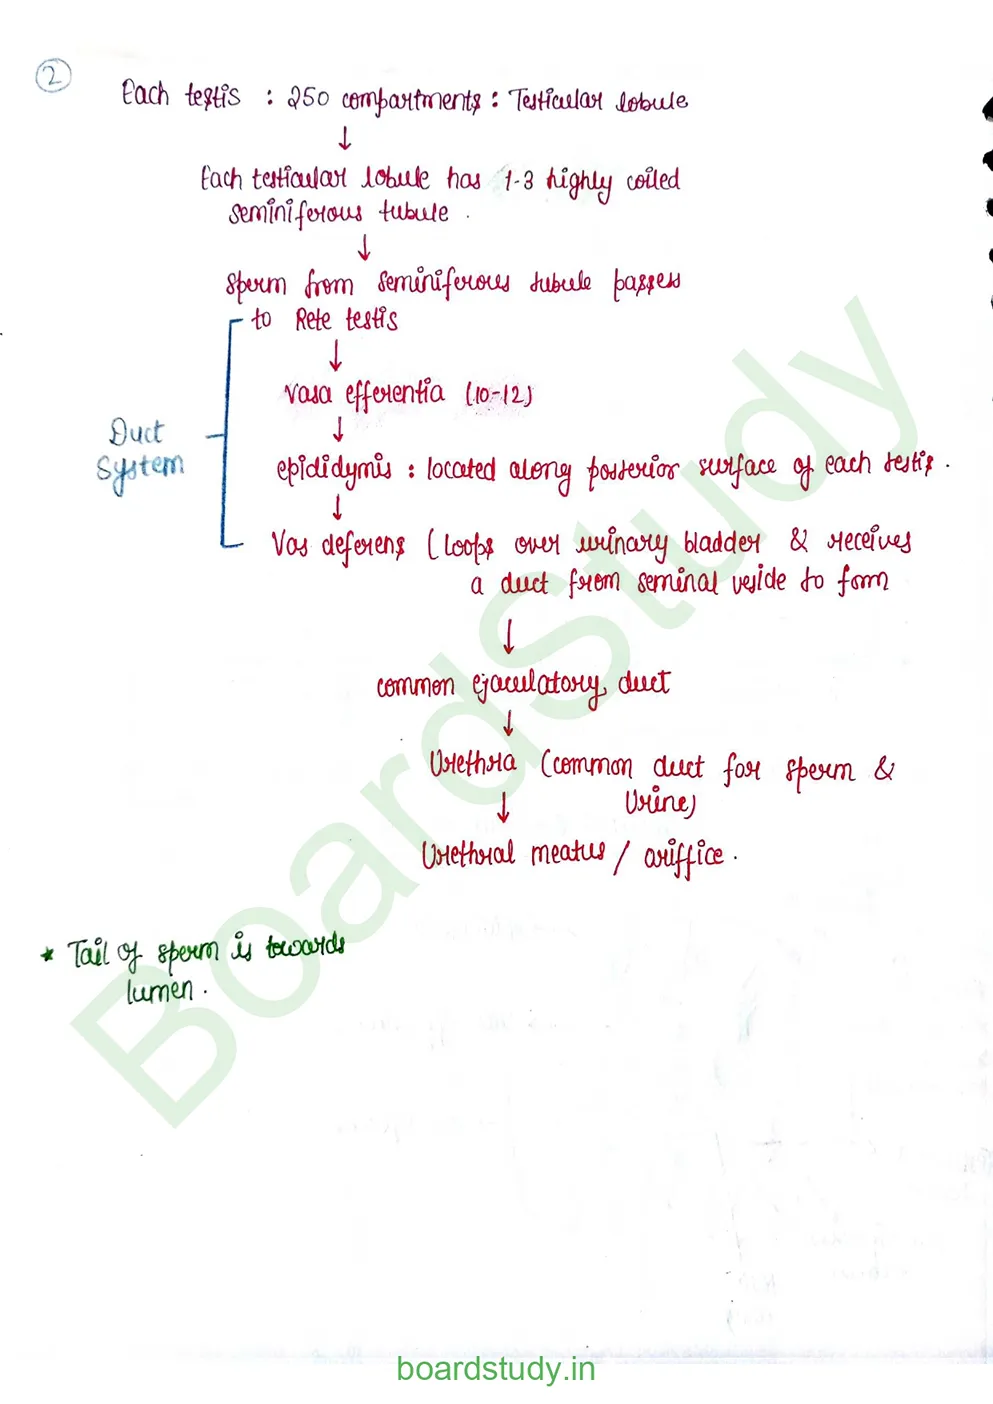 2
Each testis : 250 compartments : Testicular lobule
↓
Each testicular lobule has 1-3 highly coiled
seminiferous tubule .
↓
sperm from seminiferous tubule passes
to Rete testis
↓
Vasa efferentia (10-12)
↓
Duct
System
epididymis : located along posterior surface of each testis .
↓
Vas deferens ( Loops over urinary bladder & receives
a duct from seminal vesicle to form
↓
common ejaculatory duct
↓
Urethra (common duct for sperm &
Urine)
↓
Urethral meatus / oriffice .
* Tail of sperm is towards
lumen .
BoardStudy
boardstudy.in